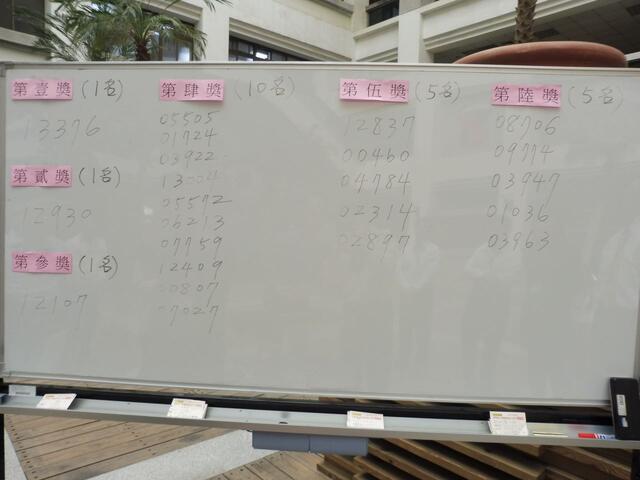 第壹獎 (1名)
13376
第貳獎 (1名)
12930
第參獎 (1名)
12107
第肆獎 (10名)
05505
01724
03922
13004
05572
06213
07759
12409
00807
07027
第伍獎 (5名)
12837
00460
04784
02314
02897
第陸獎 (5名)
08706
09774
03947
01036
03963